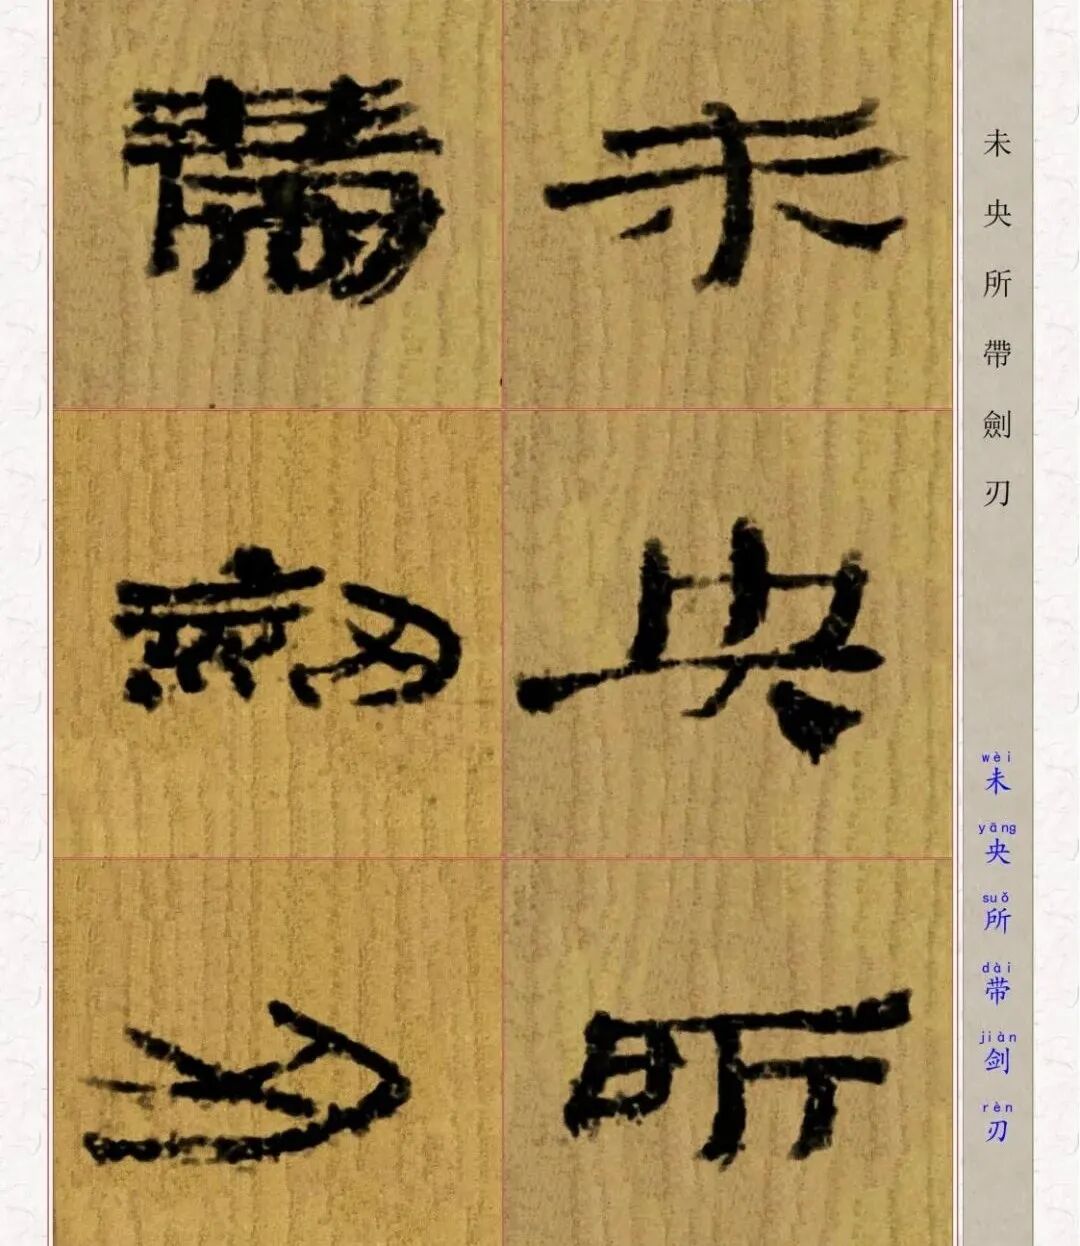 未央所
帶劍刃
未央所帶劍刃
wèi yāng suǒ dài jiàn rèn
未央所带剑刃